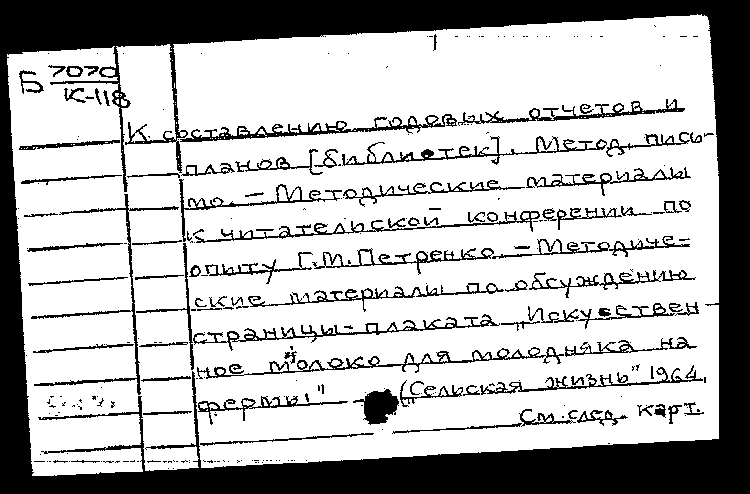 Б 7070
К-118
К составлению годовых отчетов и
планов [библиотек]. Метод. пись-
мо. - Методические материалы
к читательской конференции по
опыту Г.М. Петренко. - Методиче-
ские материалы по обсуждению
страницы-плаката „Искусствен-
ное молоко для молодняка на
фермы" - („Сельская жизнь" 1964,
См. след. карт.